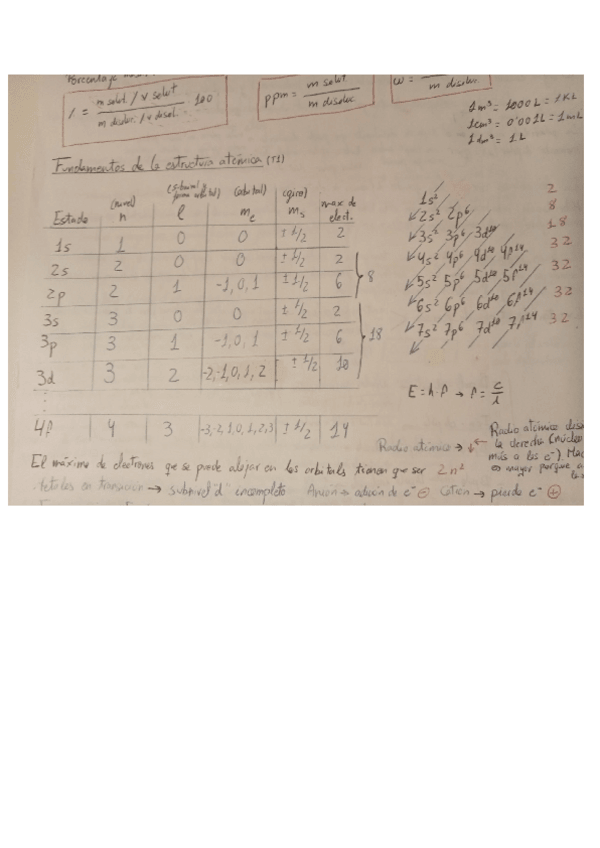 Porcentaje
% = m solut / v solut / m disoluc. / v disol. · 100
ppm = m solut / m disoluc
w = / m disoluc
1m³ = 1000 L = 1 KL
1cm³ = 0'001L = 1 mL
1dm³ = 1 L
Fundamentos de la estructura atómica (T1)
(nivel) (orbital) (giro)
Estado n l mₑ mₛ max de elect.
1s 1 0 0 ± 1/2 2
2s 2 0 0 ± 1/2 2
2p 2 1 -1, 0, 1 ± 1/2 6 } 8
3s 3 0 0 ± 1/2 2
3p 3 1 -1, 0, 1 ± 1/2 6 } 18
3d 3 2 -2, -1, 0, 1, 2 ± 1/2 10
⋮
4f 4 3 -3, -2, 1, 0, 1, 2, 3 ± 1/2 14
1s² 2
2s² 2p⁶ 8
3s² 3p⁶ 3d¹⁰ 18
4s² 4p⁶ 4d¹⁰ 4f¹⁴ 32
5s² 5p⁶ 5d¹⁰ 5f¹⁴ 32
6s² 6p⁶ 6d¹⁰ 6f¹⁴ 32
7s² 7p⁶ 7d¹⁰ 7f¹⁴ 32
E = h · f → f = c / λ
Radio atómico → ↓ ←
Radio atómico
la derecha (núcleo
más a los e⁻).
es mayor porque
El máximo de electrones que se puede alojar en los orbitals tienen que ser 2n²
Metales en transicion → subnivel "d" incompleto Anión → adición de e⁻ ⊖ Catión → pierde e⁻ ⊕